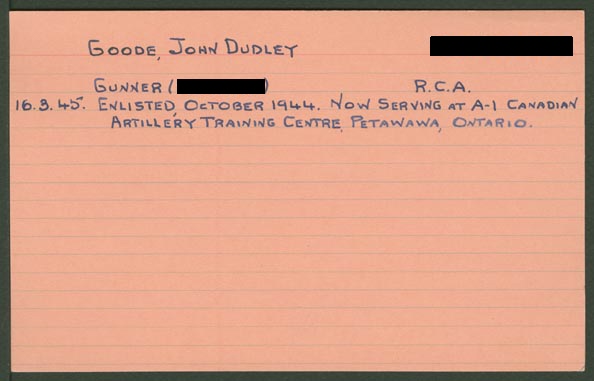 GOODE, JOHN DUDLEY
GUNNER ( ) R.C.A.
16.3.45. ENLISTED, OCTOBER 1944. NOW SERVING AT A-1 CANADIAN
ARTILLERY TRAINING CENTRE, PETAWAWA, ONTARIO.